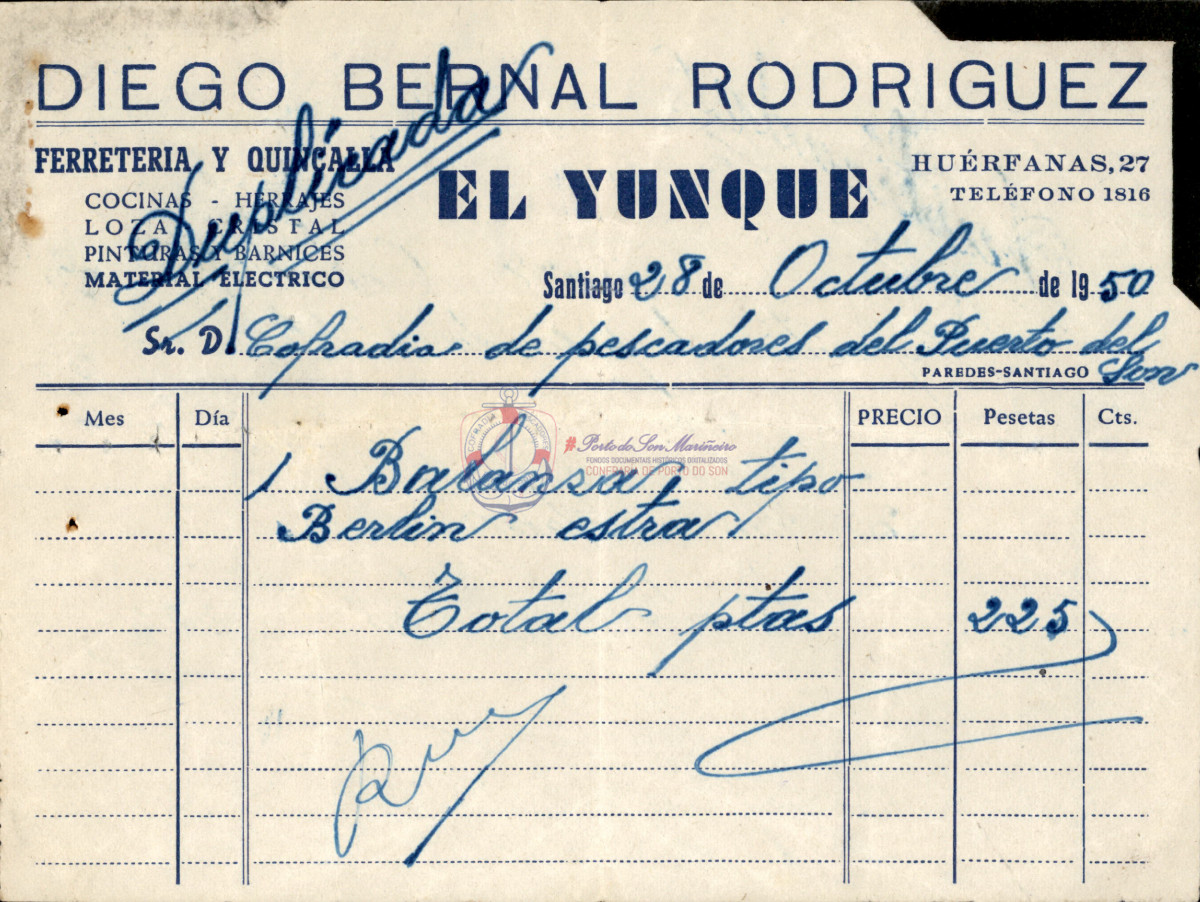 DIEGO BERNAL RODRIGUEZ
FERRETERIA Y QUINCALLA
COCINAS - HERRAJES
LOZA CRISTAL
PINTURAS Y BARNICES
MATERIAL ELECTRICO
Duplicada
EL YUNQUE
HUÉRFANAS, 27
TELÉFONO 1816
Santiago 28 de Octubre de 1950
Sr. D. Cofradia de pescadores del Puerto del
Son
PAREDES-SANTIAGO
Mes Día PRECIO Pesetas Cts.
#Porto do Son Mariñeiro
FONDOS DOCUMENTAIS HISTÓRICOS DIXITALIZADOS
CONFRARÍA DE PORTO DO SON
1 Balanza, tipo
Berlin estra
Total ptas 225